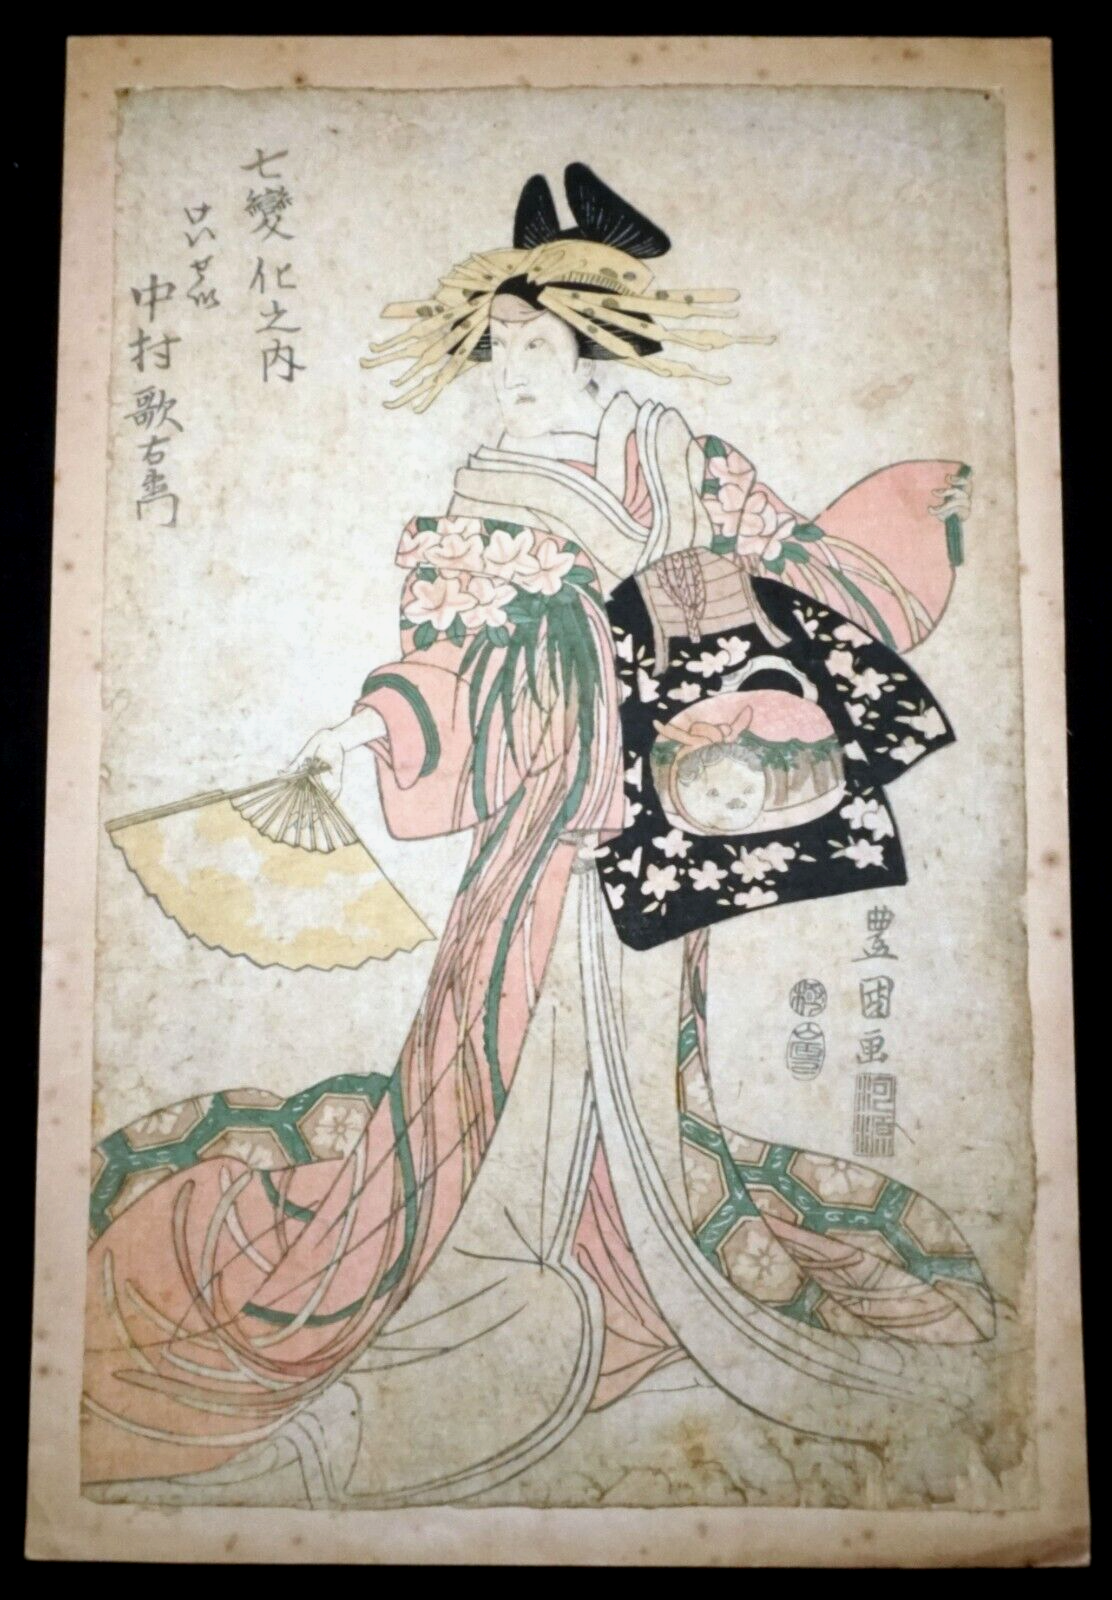 七變化之内
けいせい
中村歌右衛門
豊国画
極
河源